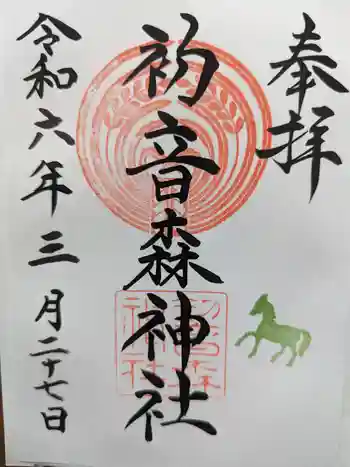 奉拝
初音森神社
令和六年三月二十七日
初音森
神社